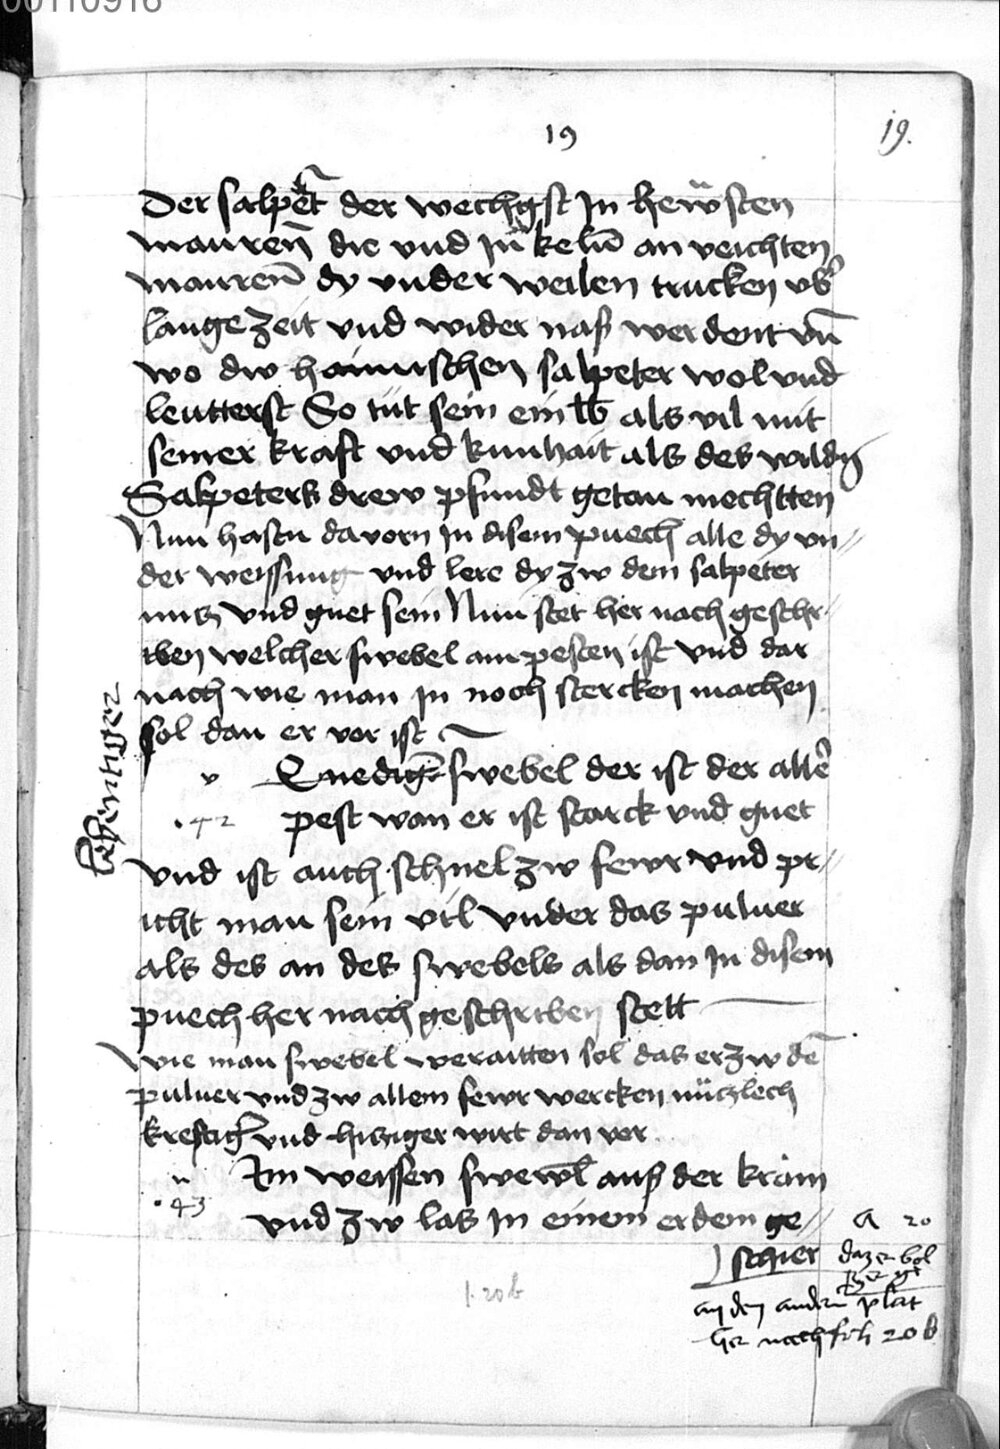 00110916
19
19.
Der salpet̄r der wechgst Jn hewsten
mauren̄ die vnd Jn kelīn an veichten
mauren̄ dy vnder weilen trucken vb̄
lange zeit vnd wider naß werdent vn̄
wo dw haimischen salpeter wol vnd
leutterst So tut sein ein lb als vil mit
seiner kraft vnd kunhait als des wildn̄
Salpeters drew pfundt getan mechtten
Nun hastu da vorn Jn disem puech alle dy vn//
der weyssung vnd lere dy zw dem salpeter
nutz vnd guet sein Nun stet her nach geschr//
iben welcher swebel am pesten ist vnd dar
nach wie man Jn noch stercken machen
sol dan er vor ist
lebentiger
Quediḡr swebel der ist der alle᷑
.42 pest wan er ist starck vnd guet
vnd ist auch schnel zw fewr vnd pr//
icht man sein vil vnder das puluer
als des an des swebels als dan Jn disem
puech her nach geschriben stett
Wie man swebel weraitten sol das er zw dē
puluer vnd zw allem fewr wercken nützlech
kreftig᷑ vnd hitziger wirt dan vor
.43 Im weyssen swew̄l auß der kram
vnd zw las Jn einem erdem ge//
schier
a 20
an den andern plat
her nach fol 20 b
1. 20 b